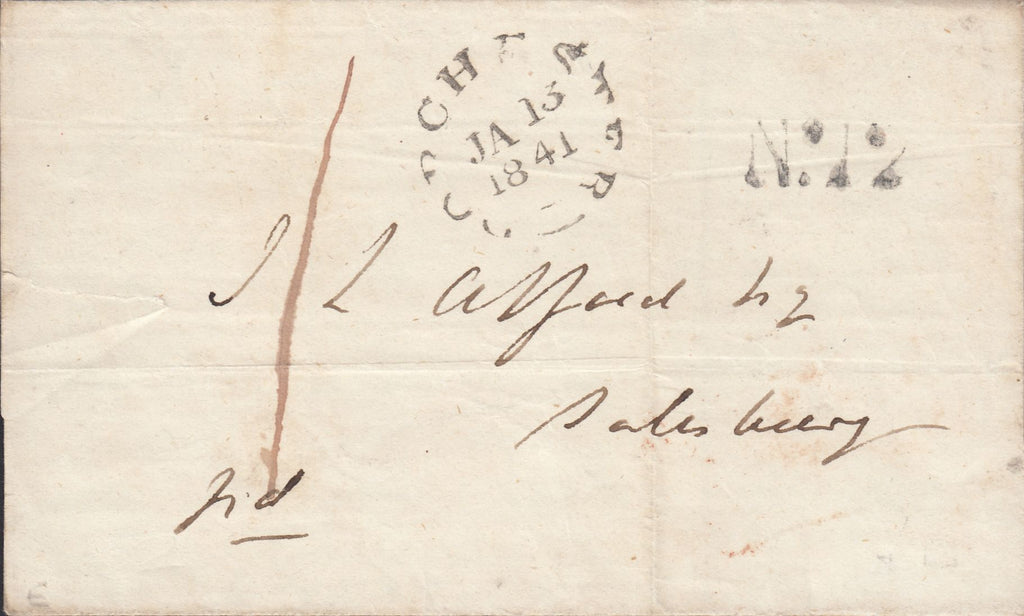 DORCHESTER
JA 13
1841
No. 12
1
J L Alford Esq
Salisbury
pd